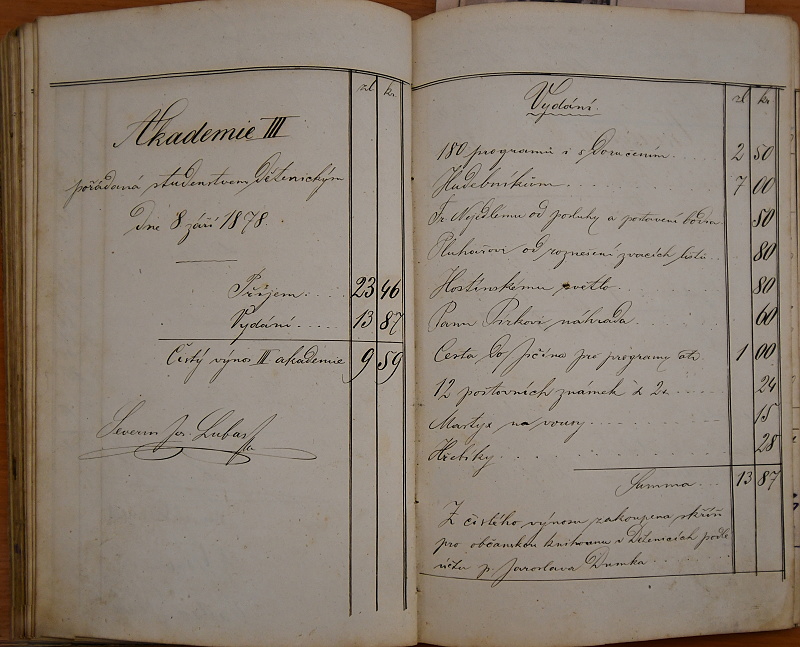 zl kr.
Akademie III
pořádaná studenstvem Dětenickým
dne 8 září 1878.
Příjem.... 23 46
Vydání..... 13 87
Čistý výnos III akademie 9 59
Severin Jos. Lubas
zl kr.
Vydání.
180 programů i s Doručením.... 2 50
Hudebníkům....... 7 00
Fr. Nejedlému od posluhy a postavení 50
Pluhařovi od roznešení zvacích listů.. 80
Hostinskému světlo....... 80
Panu Pírkovi náhrada....... 60
Cesta do Jičína pro programy atd. 1 00
12 poštovních známek à 2...... 24
Mastyx na vousy......... 15
Hřebíky........... 28
Summa... 13 87
Z čistého výnosu zakoupena skříň
pro občanskou knihovnu v Dětenicích podle
účtu p. Jaroslava Dumka......